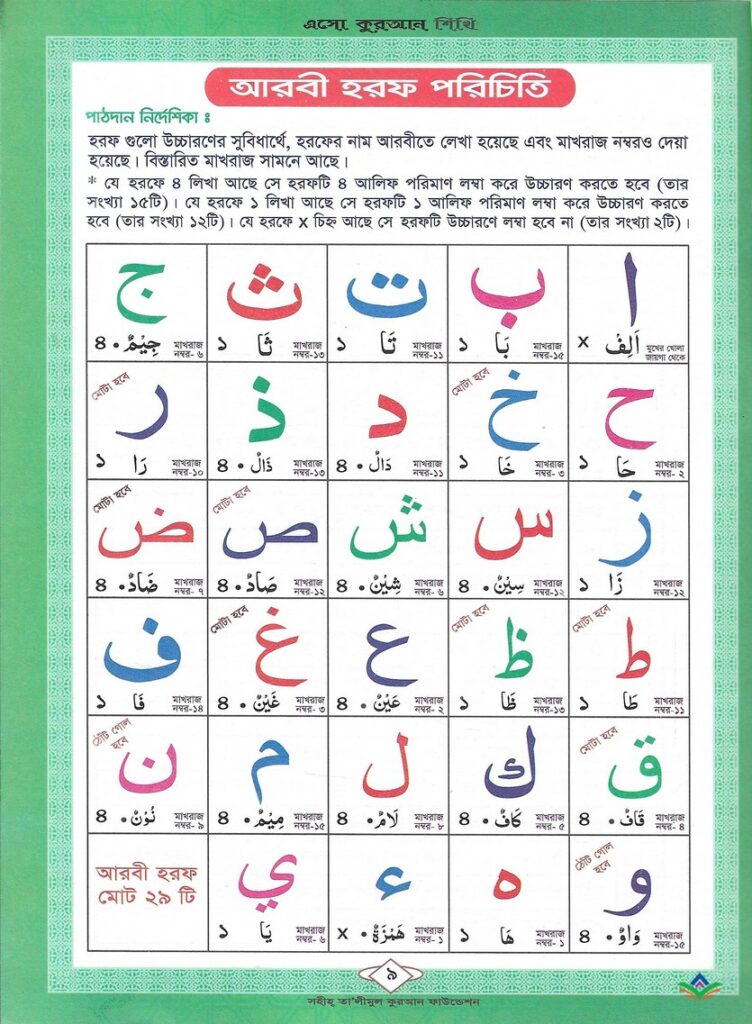 এসো কুরআন শিখি
আরবী হরফ পরিচিতি
পাঠদান নির্দেশিকা ঃ
হরফ গুলো উচ্চারণের সুবিধার্থে, হরফের নাম আরবীতে লেখা হয়েছে এবং মাখরাজ নম্বরও দেয়া
হয়েছে। বিস্তারিত মাখরাজ সামনে আছে।
* যে হরফে ৪ লিখা আছে সে হরফটি ৪ আলিফ পরিমাণ লম্বা করে উচ্চারণ করতে হবে (তার
সংখ্যা ১৫টি)। যে হরফে ১ লিখা আছে সে হরফটি ১ আলিফ পরিমাণ লম্বা করে উচ্চারণ করতে
হবে (তার সংখ্যা ১২টি)। যে হরফে x চিহ্ন আছে সে হরফটি উচ্চারণে লম্বা হবে না (তার সংখ্যা ২টি)।
ا
মুখের খোলা
জায়গা থেকে
اَلِفْ x
ب
মাখরাজ
নম্বর-১৫
بَا ১
ت
মাখরাজ
নম্বর-১১
تَا ১
ث
মাখরাজ
নম্বর-১৩
ثَا ১
ج
মাখরাজ
নম্বর- ৬
جِيْمْ • ৪
ح
মাখরাজ
নম্বর- ২
حَا ১
মোটা হবে
خ
মাখরাজ
নম্বর- ৩
خَا ১
د
মাখরাজ
নম্বর-১১
دَالْ • ৪
ذ
মাখরাজ
নম্বর-১৩
ذَالْ • ৪
মোটা হবে
ر
মাখরাজ
নম্বর-১০
رَا ১
ز
মাখরাজ
নম্বর-১২
زَا ১
س
মাখরাজ
নম্বর-১২
سِيْنْ • ৪
ش
মাখরাজ
নম্বর- ৬
شِيْنْ • ৪
মোটা হবে
ص
মাখরাজ
নম্বর-১২
صَادْ • ৪
মোটা হবে
ض
মাখরাজ
নম্বর- ৭
ضَادْ • ৪
মোটা হবে
ط
মাখরাজ
নম্বর-১১
طَا ১
মোটা হবে
ظ
মাখরাজ
নম্বর-১৩
ظَا ১
ع
মাখরাজ
নম্বর- ২
عَيْنْ • ৪
মোটা হবে
غ
মাখরাজ
নম্বর- ৩
غَيْنْ • ৪
ف
মাখরাজ
নম্বর-১৪
فَا ১
মোটা হবে
ق
মাখরাজ
নম্বর- ৪
قَافْ • ৪
ك
মাখরাজ
নম্বর- ৫
كَافْ • ৪
ل
মাখরাজ
নম্বর- ৮
لَامْ • ৪
م
মাখরাজ
নম্বর-১৫
مِيْمْ • ৪
ঠোঁট গোল
হবে
ن
মাখরাজ
নম্বর- ৯
نُوْنْ • ৪
ঠোঁট গোল
হবে
و
মাখরাজ
নম্বর-১৫
وَاوْ • ৪
ه
মাখরাজ
নম্বর- ১
هَا ১
ء
মাখরাজ
নম্বর- ১
هَمْزَةْ • x
ي
মাখরাজ
নম্বর- ৬
يَا ১
আরবী হরফ
মোট ২৯ টি
৯
সহীহ্ তা'লীমুল কুরআন ফাউন্ডেশন